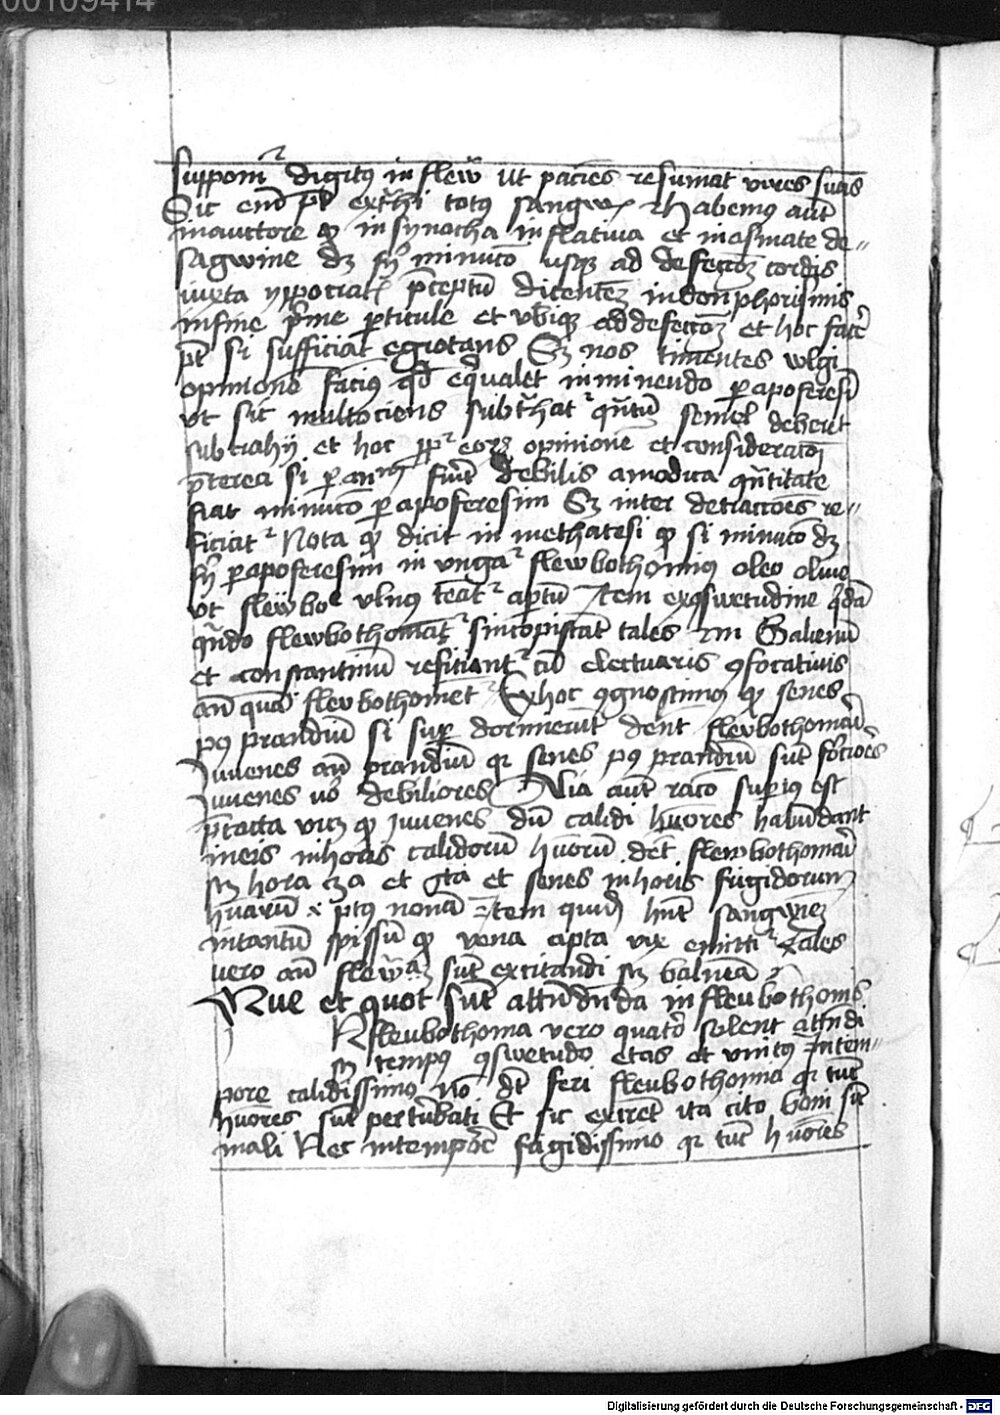 00109414
supponit᷑ digitꝰ in flew̅ ut pacie̅s resumat vires suas
Sic eni̅ pt̅ ext̅hi totꝰ sangwis Habemꝰ aut̅
in auctore ꝙ in synocha inflatiua et in asmate de
sagwine dꝫ fi̅ minuco̅ usqꝫ ad defecco̅ꝫ cordis
iuxta yppocratis p̅ceptu̅ dicente̅ in
in fine p̅me p̅ticule et vbiqꝫ ad defecco̅ꝫ et hoc face̅
pt̅ si sufficiat egrotans Sꝫ nos timentes wlgi
opinione̅ facimꝰ qd̅ eq̅ualet in minuendo p̲ apoferesi̅
vt sic multociens subt̅hat᷑ qn̅tu̅ semel deberet
subtrahi et hoc pp̅t᷑ eoꝝ opinione̅ et consideraco̅ꝫ
p̅terea si fuer̅t debilis a modica qn̅titate
fiat minuco̅ p̲ apoferesim Sꝫ inter detraccio̅es re
ficiat᷑ Nota ꝙ dicit in methatesi ꝙ si minuco̅ dꝫ
fi̅ p̲ apoferesim in vngat᷑ flewbothomꝰ oleo oliue
vt flew̅bo vlnꝰ teat᷑ ap̲tu̅ Item ex ꝯswetudine q̅da̅
qn̅do flewbothomat᷑ sincopisant tales Galienu̅
et constantinu̅ reficiant᷑ cu̅ electuariis ꝯfortatiuis
an̅ qua̅ flewbothomet᷑ Ex hoc ꝯgnoscimꝰ ꝙ senes
pꝰ prandiu̅ si sup̲ dormierint dent flewbothomari̅
Iuuenes an̅ prandiu̅ qr senes pꝰ prandiu̅ su̅t forciores
Iuuenes vo̅ debiliores Alia aut̅ raco̅ supiꝰ est
p̅tacta vicꝫ ꝙ Iuuenes du̅ calidi hu̅ores habundant
in eis in horis calidoru̅ hu̅oru̅ det̅ flewbothomari̅
sꝫ hora t̅cia et q̅ta et senes in horis frigidorum
hu̅orum ptꝰ nona̅ Item quida̅ hn̅t sangwine̅
in tantu̅ spissu̅ ꝙ vena apta vix emittit᷑ Tales
vero an̅ flew̅a̅ su̅t excitandi sꝫ balnea̅
Que et quot su̅t attn̅dn̅da in fleubothomis
In fleubothomia vero quator̅ solent attn̅di
sꝫ tempꝰ ꝯswetudo etas et virtꝰ In tem
pore calidissimo no̅ dꝫ fieri fleubothomia qr tu̅c
hu̅ores su̅t perturbati Et sic exiret ita cito boni sic̅
mali Nec in tempore frigidissimo qr tu̅c hu̅ores
Digitalisierung gefördert durch die Deutsche Forschungsgemeinschaft - DFG